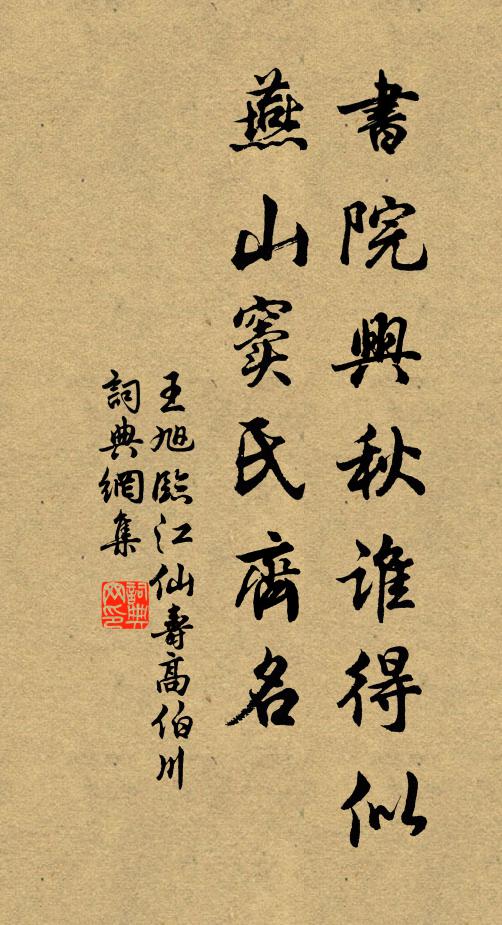 書院興秋誰得似
燕山竇氏齊名
王旭臨江仙壽高伯川
詞典網集
詞典网印